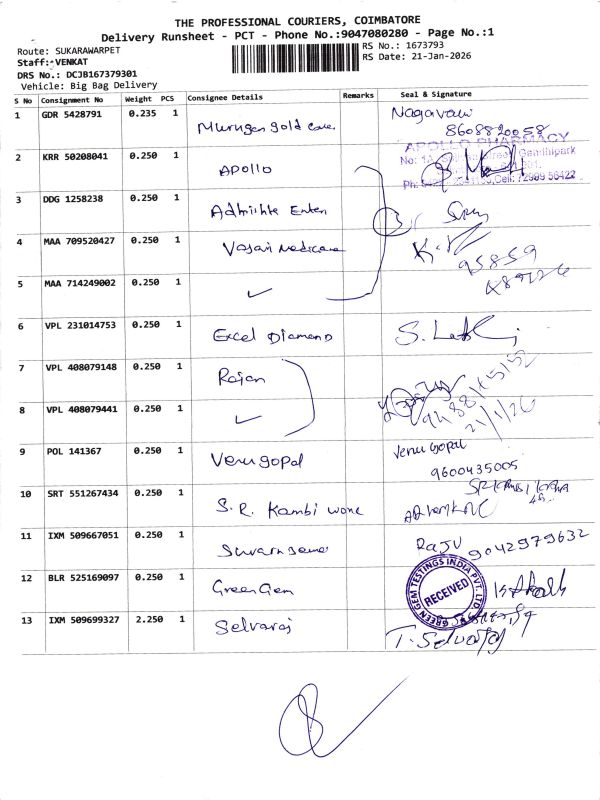 THE PROFESSIONAL COURIERS, COIMBATORE
Delivery Runsheet - PCT - Phone No.:9047080280 - Page No.:1
Route: SUKARAWARPET
RS No.: 1673793
Staff: VENKAT
RS Date: 21-Jan-2026
DRS No.: DCJB167379301
Vehicle: Big Bag Delivery
S No Consignment No Weight PCS Consignee Details Remarks Seal & Signature
1 GDR 5428791 0.235 1 Murugan gold 8608820058
2 KRR 50208041 0.250 1 Apollo APOLLO PHARMACY
Gandhipark
3 DDG 1258238 0.250 1
4 MAA 709520427 0.250 1 Vasan Medicare 95859
5 MAA 714249002 0.250 1 ✓
6 VPL 231014753 0.250 1 Excel Diamond
7 VPL 408079148 0.250 1 Rajan
8 VPL 408079441 0.250 1 ✓ 21/1/26
9 POL 141367 0.250 1 Venugopal Venu Gopal
9600435005
10 SRT 551267434 0.250 1 S.R. Kambi
11 IXM 509667051 0.250 1 RAJU 9042979632
12 BLR 525169097 0.250 1 Green Gem GREEN GEM TESTINGS INDIA PVT. LTD. RECEIVED
13 IXM 509699327 2.250 1 Selvaraj T. Selvaraj